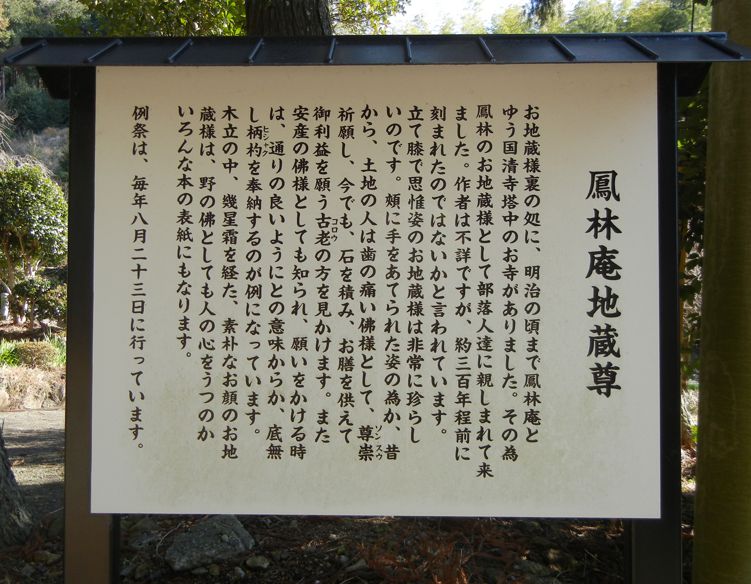 鳳林庵地蔵尊
お地蔵様裏の処に、明治の頃まで鳳林庵と
ゆう国清寺塔中のお寺がありました。その為
鳳林のお地蔵様として部落人達に親しまれて来
ました。作者は不詳ですが、約三百年程前に
刻まれたのではないかと言われています。
立て膝で思惟姿のお地蔵様は非常に珍らし
いのです。頬に手をあてられた姿の為か、昔
から、土地の人は歯の痛い佛様として、尊崇
ソンスウ
祈願し、今でも、石を積み、お膳を供えて
御利益を願う古老の方を見かけます。また
コロウ
安産の佛様としても知られ、願いをかける時
は、通りの良いようにとの意味からか、底無
し柄杓を奉納するのが例になっています。
ヒシャク
木立の中、幾星霜を経た、素朴なお顔のお地
蔵様は、野の佛としても人の心をうつのか
いろんな本の表紙にもなります。
例祭は、毎年八月二十三日に行っています。